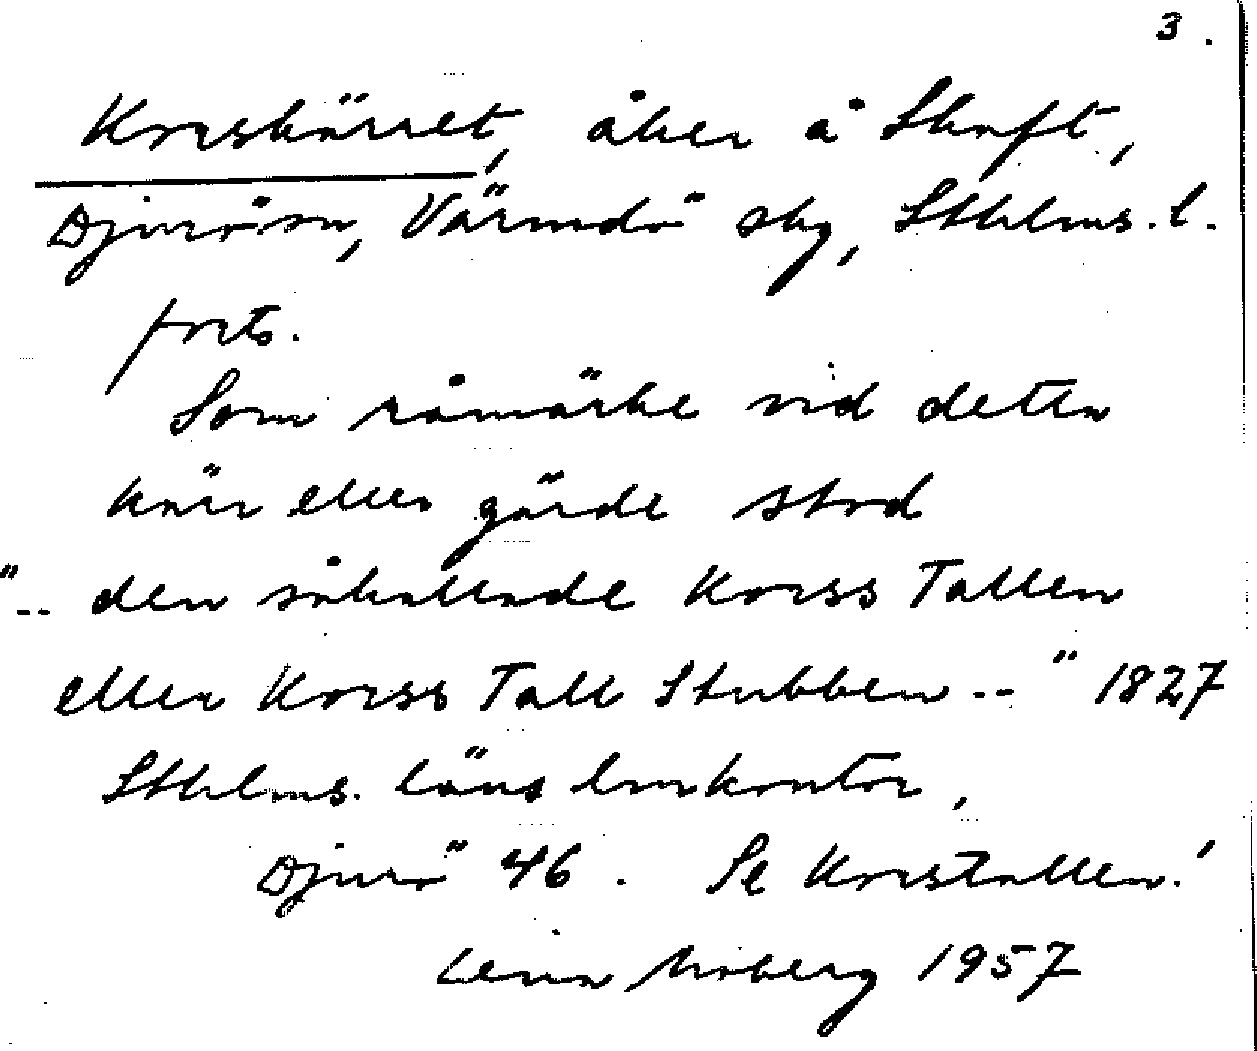 3.
Korskärret, åker å Skaft,
Djurö sn, Värmdö skg, Sthlms. l.
forts.
Som råmärke vid detta
kärr eller gärde stod
"-- den såkallade Korss Tallen
eller Korss Tall Stubben --" 1827
Sthlms. läns lmkontor,
Djurö 46. Se Korstallen!
Lena Moberg 1957